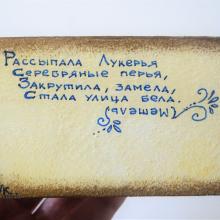 Рассыпала Лукерья
Серебряные перья,
Закрутила, замела,
Стала улица бела.
(Метель)